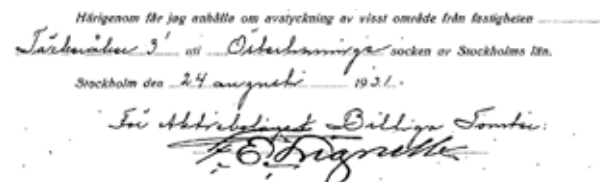 Härigenom får jag anhålla om avstyckning av visst område från fastigheten
3¹ uti Österhaninge socken av Stockholms län.
Stockholm den 24 augusti 1931.
För Aktiebolaget Billiga Tomter: